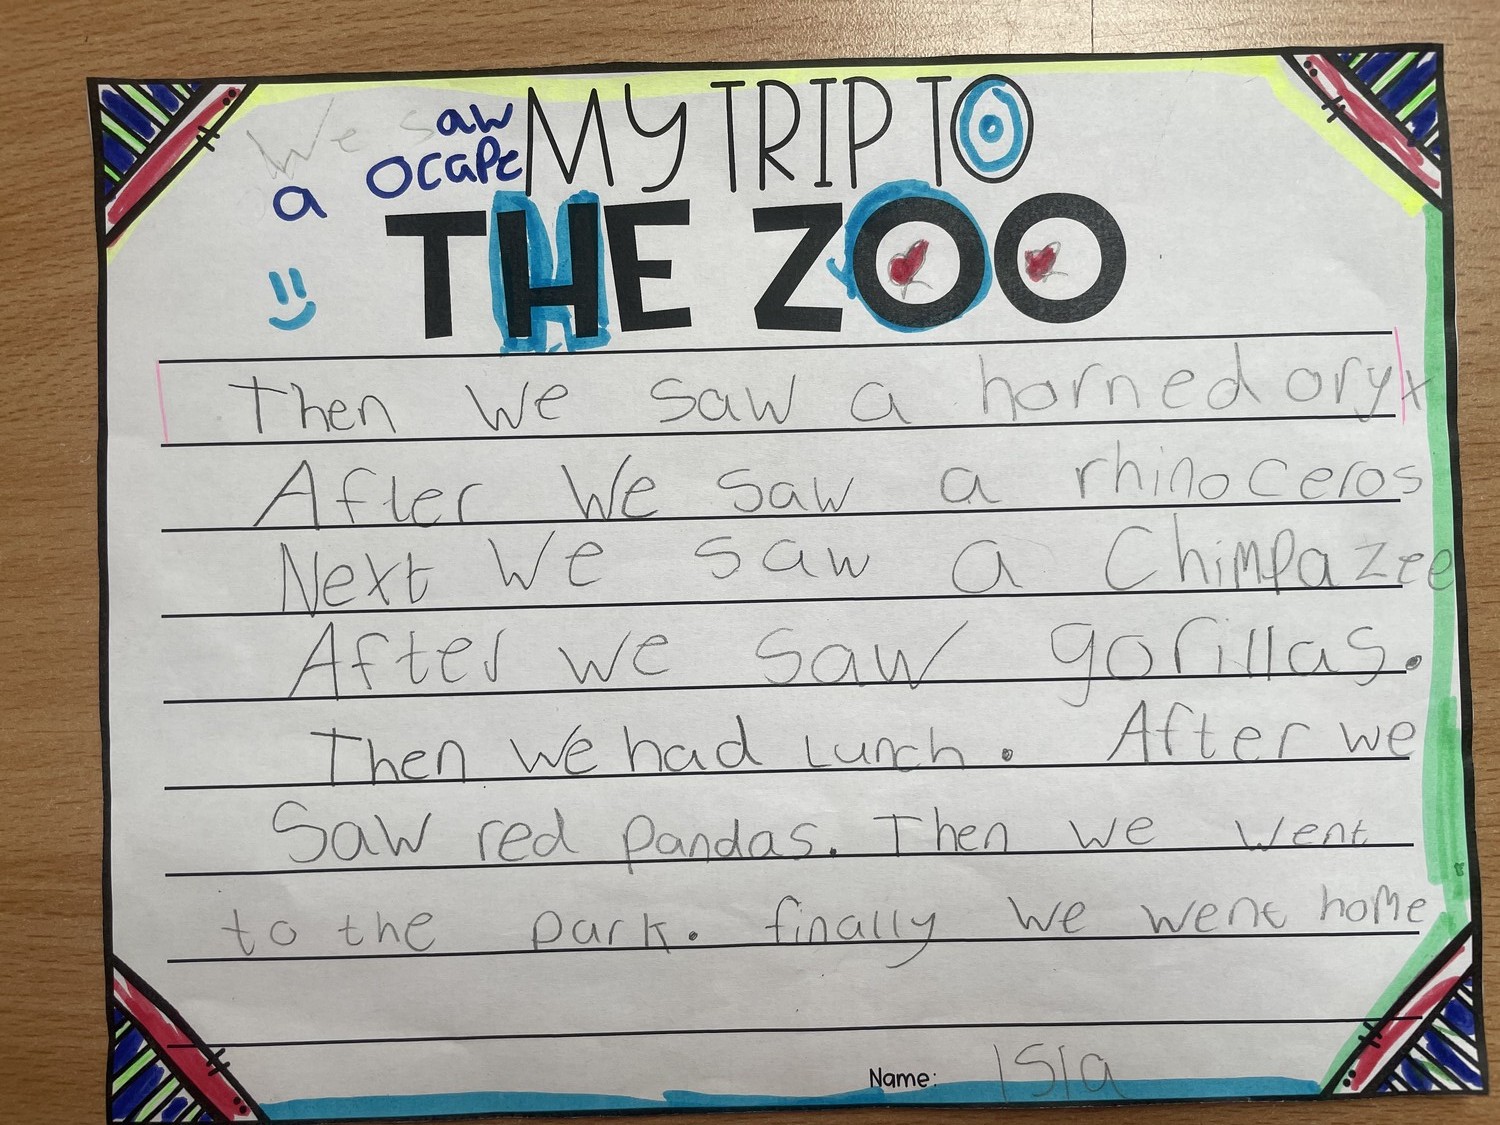 We saw
a ocape
MY TRIP TO
THE ZOO
Then we saw a horned oryx
After we saw a rhinoceros
Next we saw a Chimpazee
After we saw gorillas.
Then we had Lunch. After we
Saw red pandas. Then we went
to the park. finally we went home
Name: Isla